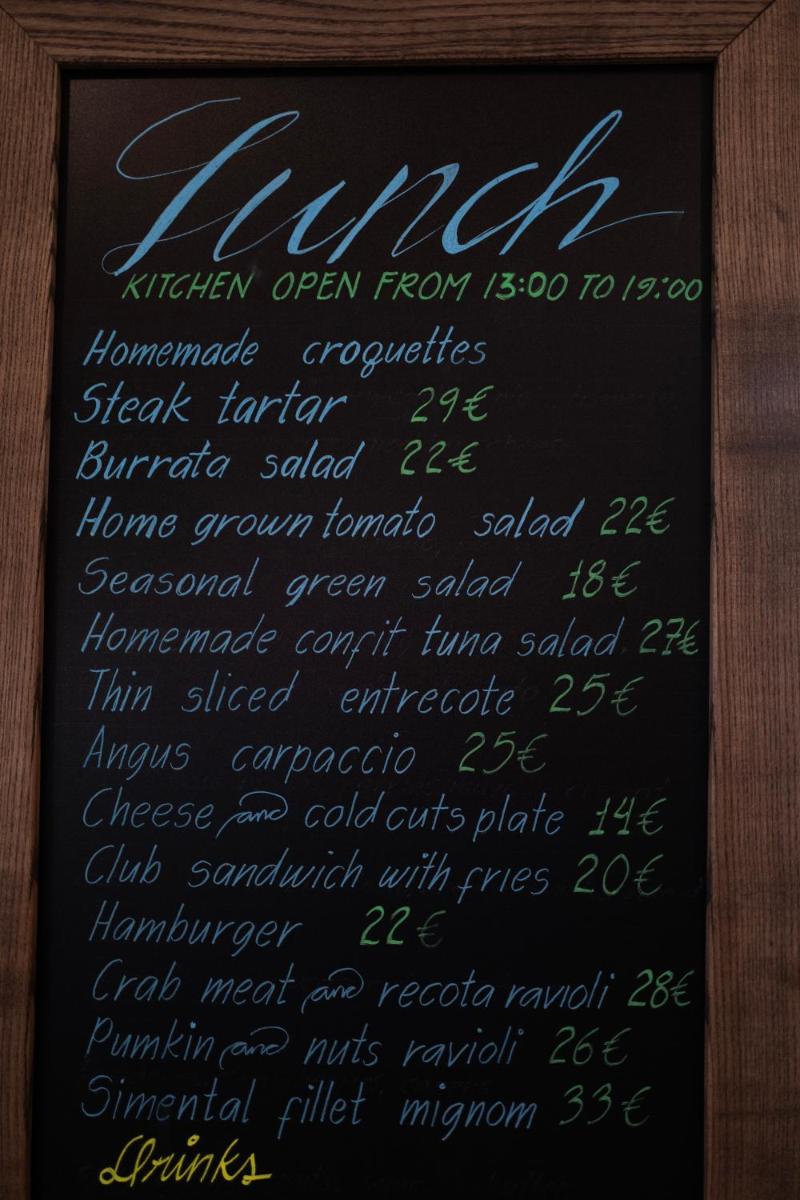 Lunch
KITCHEN OPEN FROM 13:00 TO 19:00
Homemade croquettes
Steak tartar 29€
Burrata salad 22€
Home grown tomato salad 22€
Seasonal green salad 18€
Homemade confit tuna salad 27€
Thin sliced entrecote 25€
Angus carpaccio 25€
Cheese and cold cuts plate 14€
Club sandwich with fries 20€
Hamburger 22€
Crab meat and recota ravioli 28€
Pumkin and nuts ravioli 26€
Simental fillet mignom 33€
Drinks